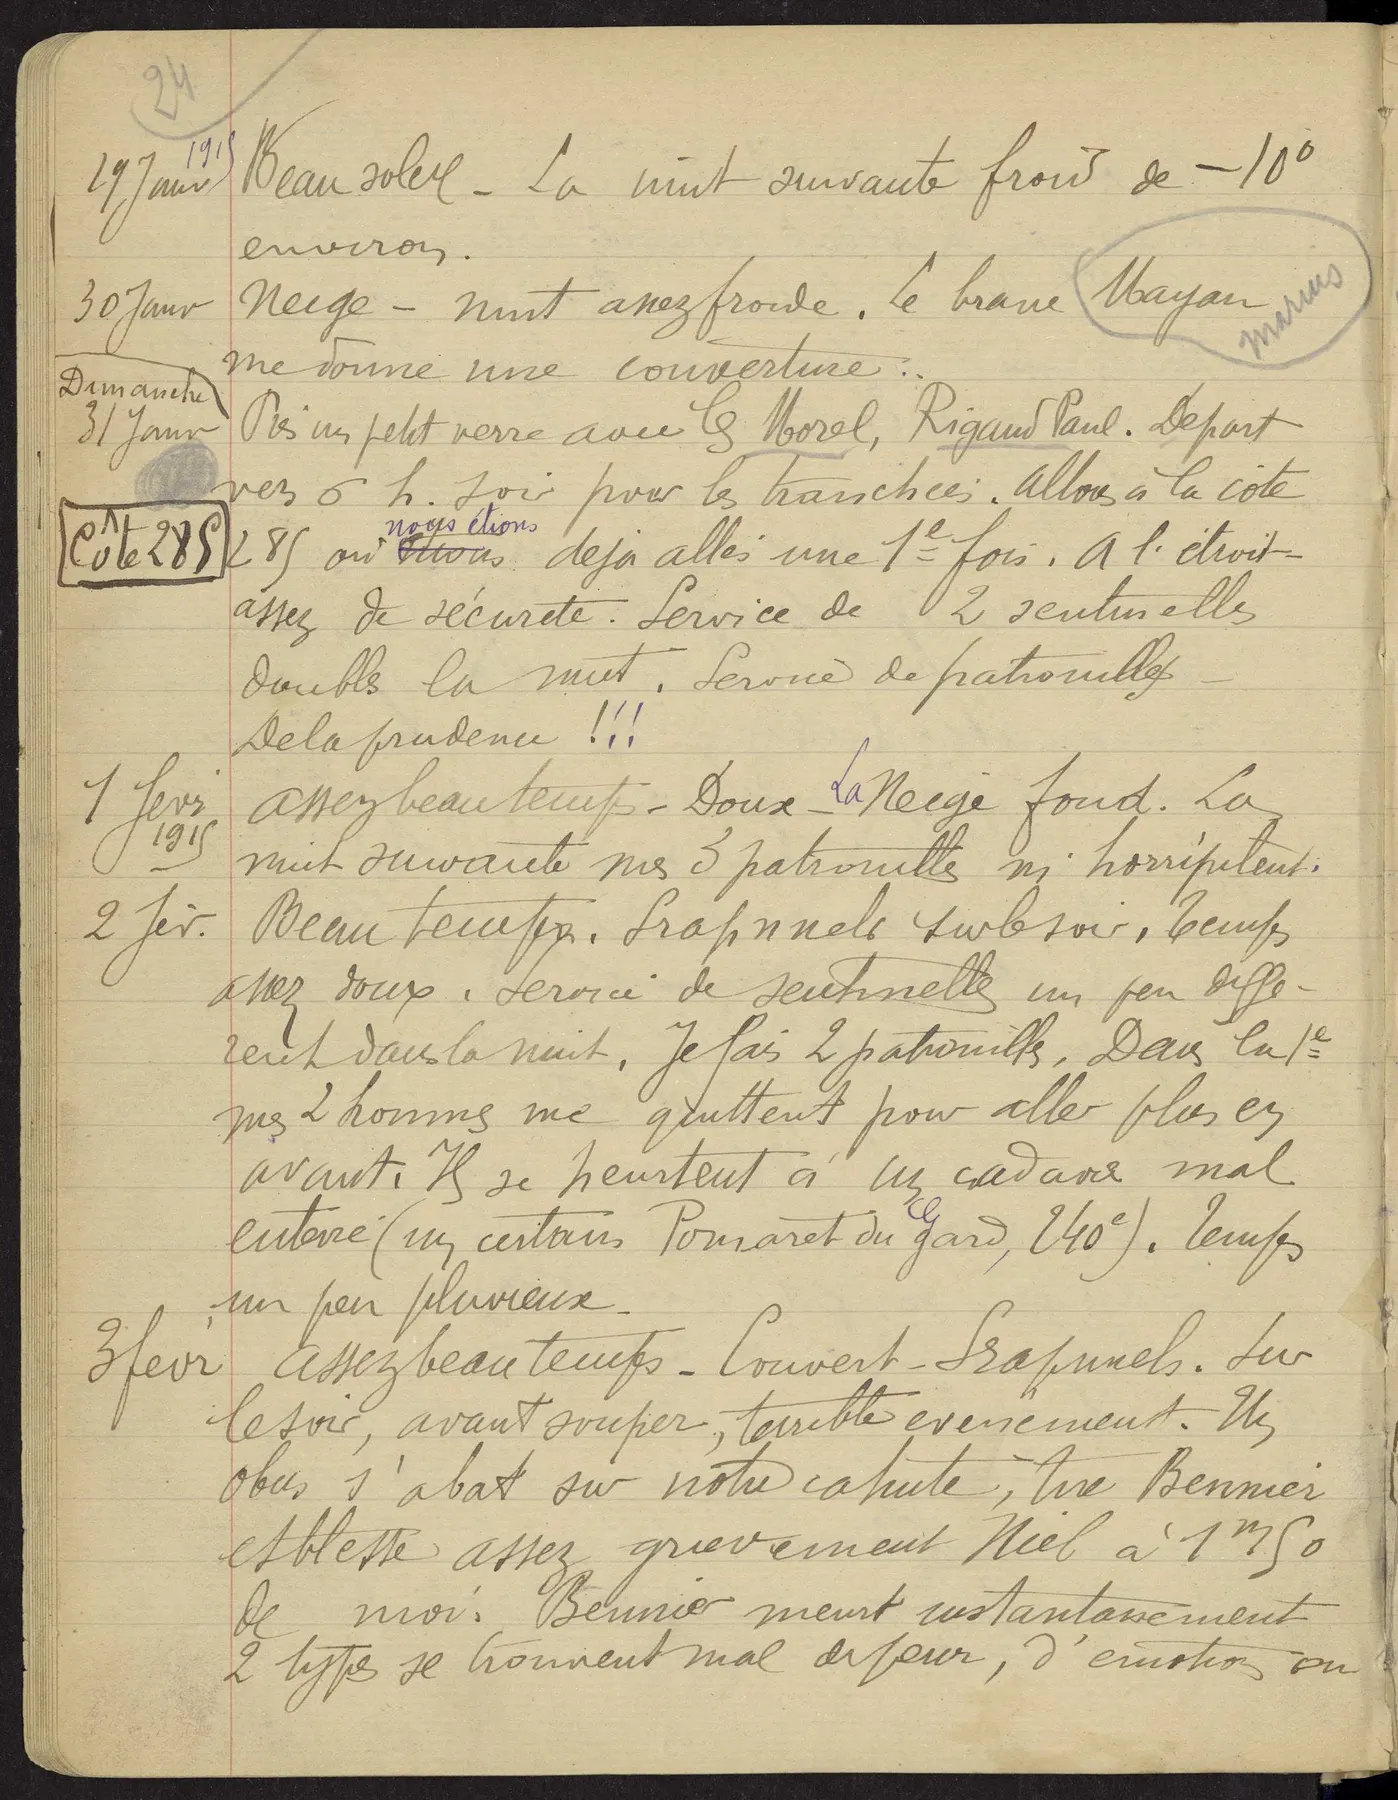 24
1915
29 Janv Beau soleil - La nuit suivante froid de -10°
environ.
30 Janv Neige - nuit assez froide. Le brave Mayan
Marius
me donne une couverture..
Dimanche
31 Janv Pris un petit verre avec les Morel, Rigaud Paul. Depart
vers 6 h. soir pour les tranchées. Allons à la côte
Côte 285
nous étions
285 où deja allés une 1e fois. A l'étroit
assez de sécurete. Service de 2 sentinelles
doubles la nuit. Service de patrouilles -
De la prudence !!!
1 fevr assez beau temps - Doux - La Neige fond. La
1915
nuit suivante mes 3 patrouilles m'horripilent.
2 fév. Beau temps. Srapnnels sur le soir. Temps
assez doux. Service de sentinelles un peu diffe-
rent dans la nuit. Je fais 2 patrouilles. Dans la 1e
mes 2 hommes me quittent pour aller plus en
avant. Ils se heurtent à un cadavre mal
enterré (un certain Pomaret du Gard, 240e). Temps
un peu pluvieux -
3 fevr assez beau temps - Couvert - Srapnnels. Sur
le soir, avant souper, terrible evenement. Un
obus s'abat sur notre cahute, tue Bennier
et blesse assez grievement Niel à 1m50
de moi. Bennier meurt instantanement
2 types se trouvent mal de peur, d'emotion ou